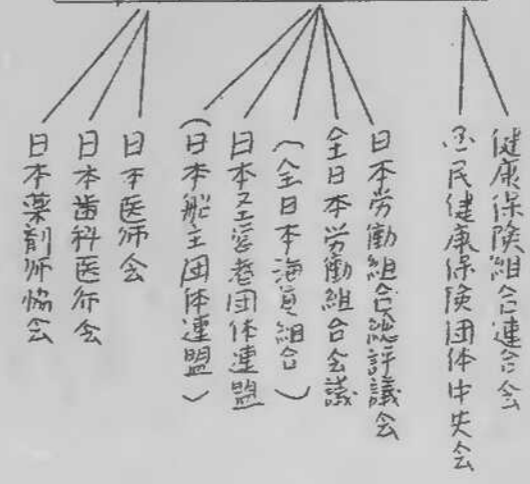 健康保険組合連合会
国民健康保険団体中央会
日本労働組合総評議会
全日本労働組合会議
(全日本海員組合)
日本経営者団体連盟
(日本船主団体連盟)
日本医师会
日本歯科医师会
日本薬剤师協会